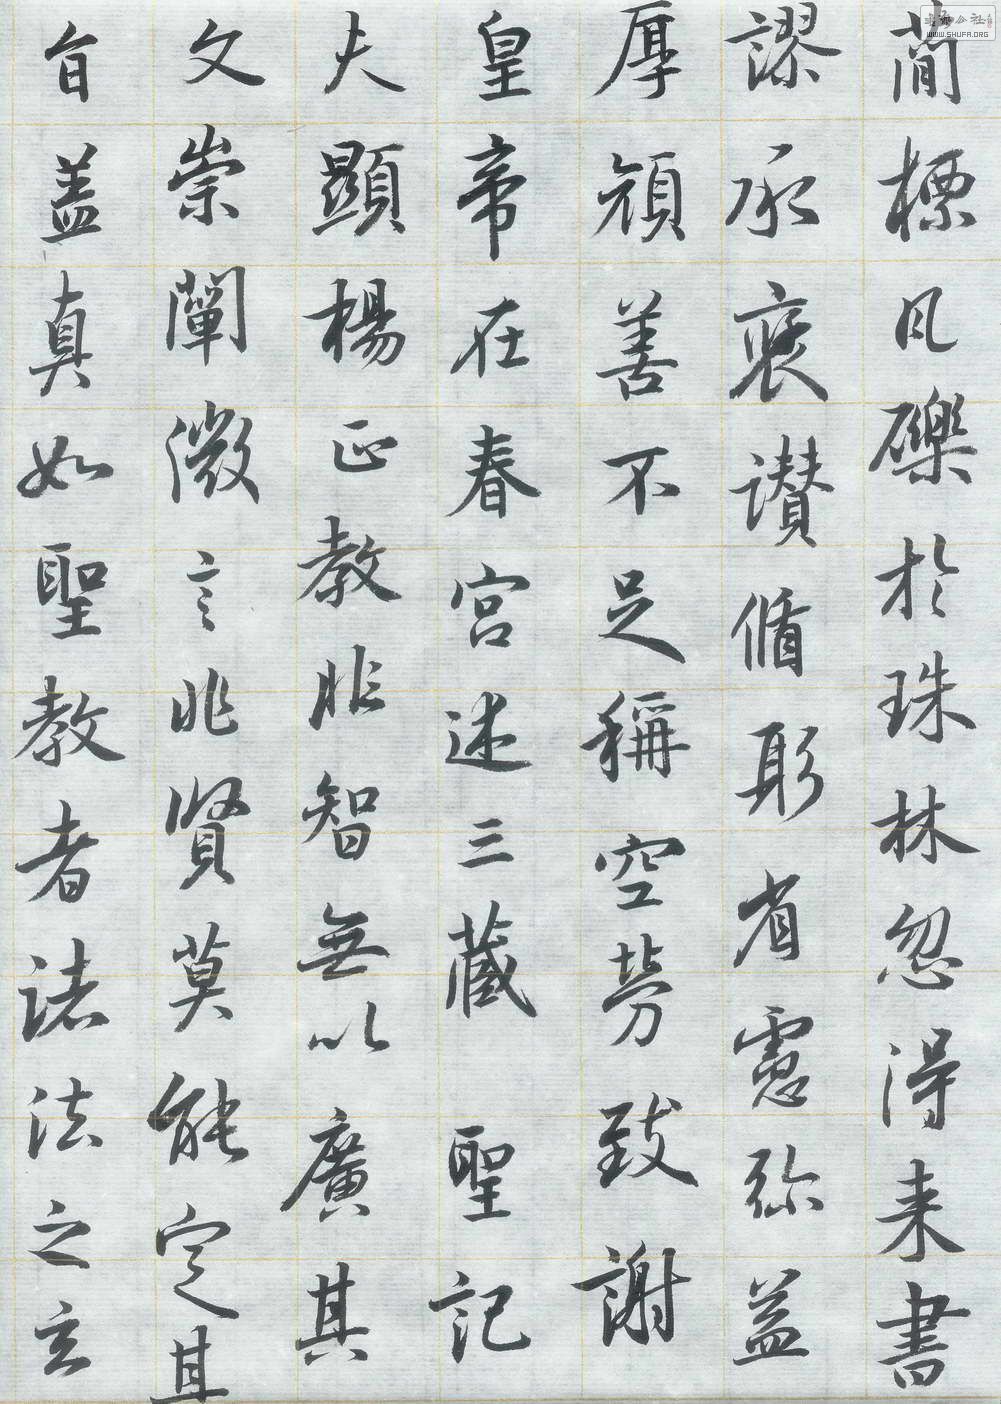 蕳摽凡礫於珠林忽得来書
謬承褒讃脩躬省慮弥益
厚顔善不足稱空劳致謝
皇帝在春宫述三藏聖記
夫顯楊正教非智無以廣其
文崇闡微言非贤莫能定其
旨盖真如聖教者诸法之玄
WWW.SHUFA.ORG